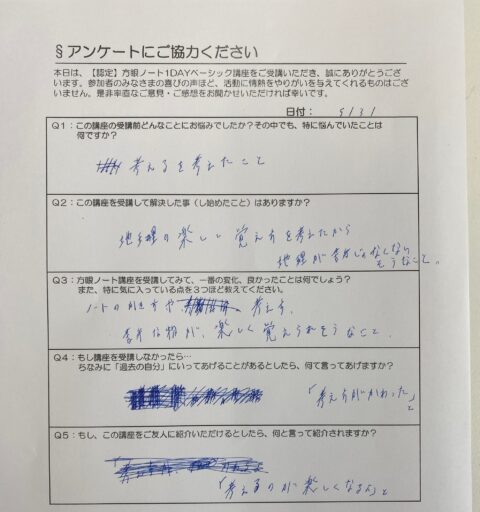 §アンケートにご協力ください
本日は、【認定】方眼ノート1DAYベーシック講座をご受講いただき、誠にありがとうござ
います。参加者のみなさまの喜びの声ほど、活動に情熱をやりがいを与えてくれるものはござ
いません。是非率直なご意見・ご感想をお聞かせいただければ幸いです。
日付: 5/31
Q1:この講座の受講前どんなことにお悩みでしたか?その中でも、特に悩んでいたことは
何ですか?
考えること
Q2:この講座を受講して解決した事(し始めたこと)はありますか?
地理の楽しい覚え方を考えたから
地理が苦手じゃなくなり
そうなこと。
Q3:方眼ノート講座を受講してみて、一番の変化、良かったことは何でしょう?
また、特に気に入っている点を3つほど教えてください。
ノートのかき方や 考え方、
苦手な物が、楽しく覚えられそうなこと、
Q4:もし講座を受講しなかったら…
ちなみに「過去の自分」にいってあげることがあるとしたら、何て言ってあげますか?
「考え方がかわった」
と
Q5:もし、この講座をご友人に紹介いただけるとしたら、何と言って紹介されますか?
「考えるのが楽しくなるよ」と